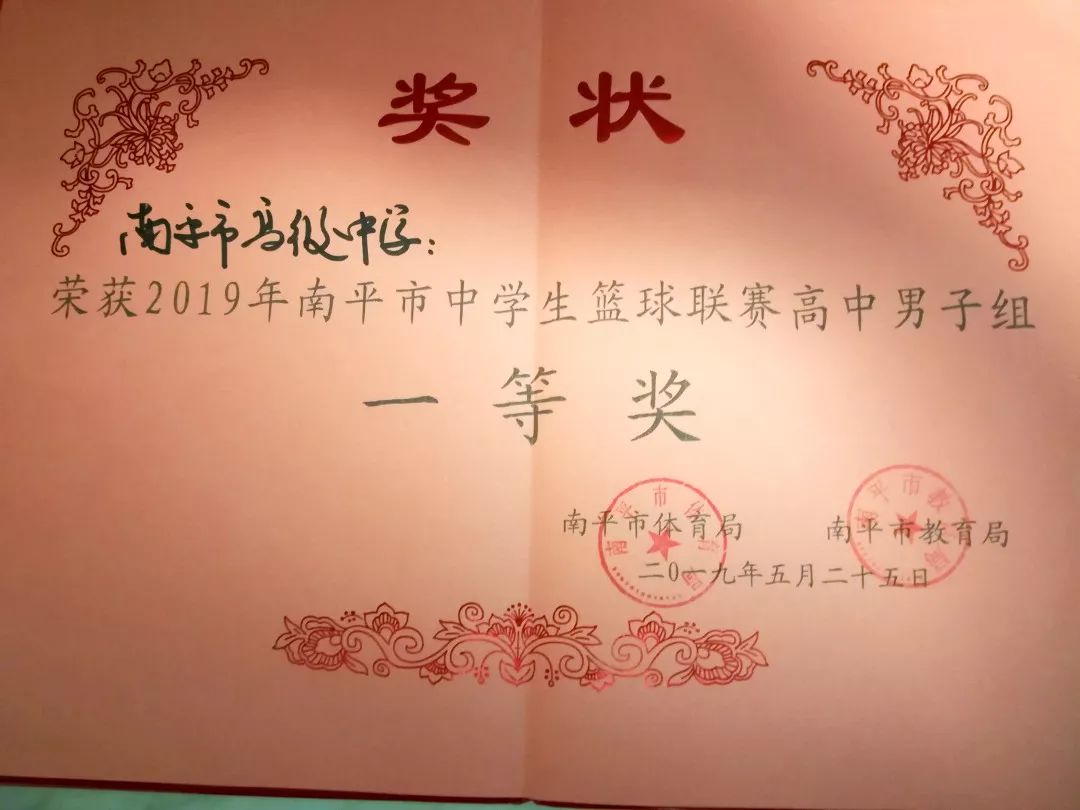 奖状
南平市高级中学：
荣获2019年南平市中学生篮球联赛高中男子组
一等奖
南平市体育局 南平市教育局
二0一九年五月二十五日
南平市体育局
南平市教育局